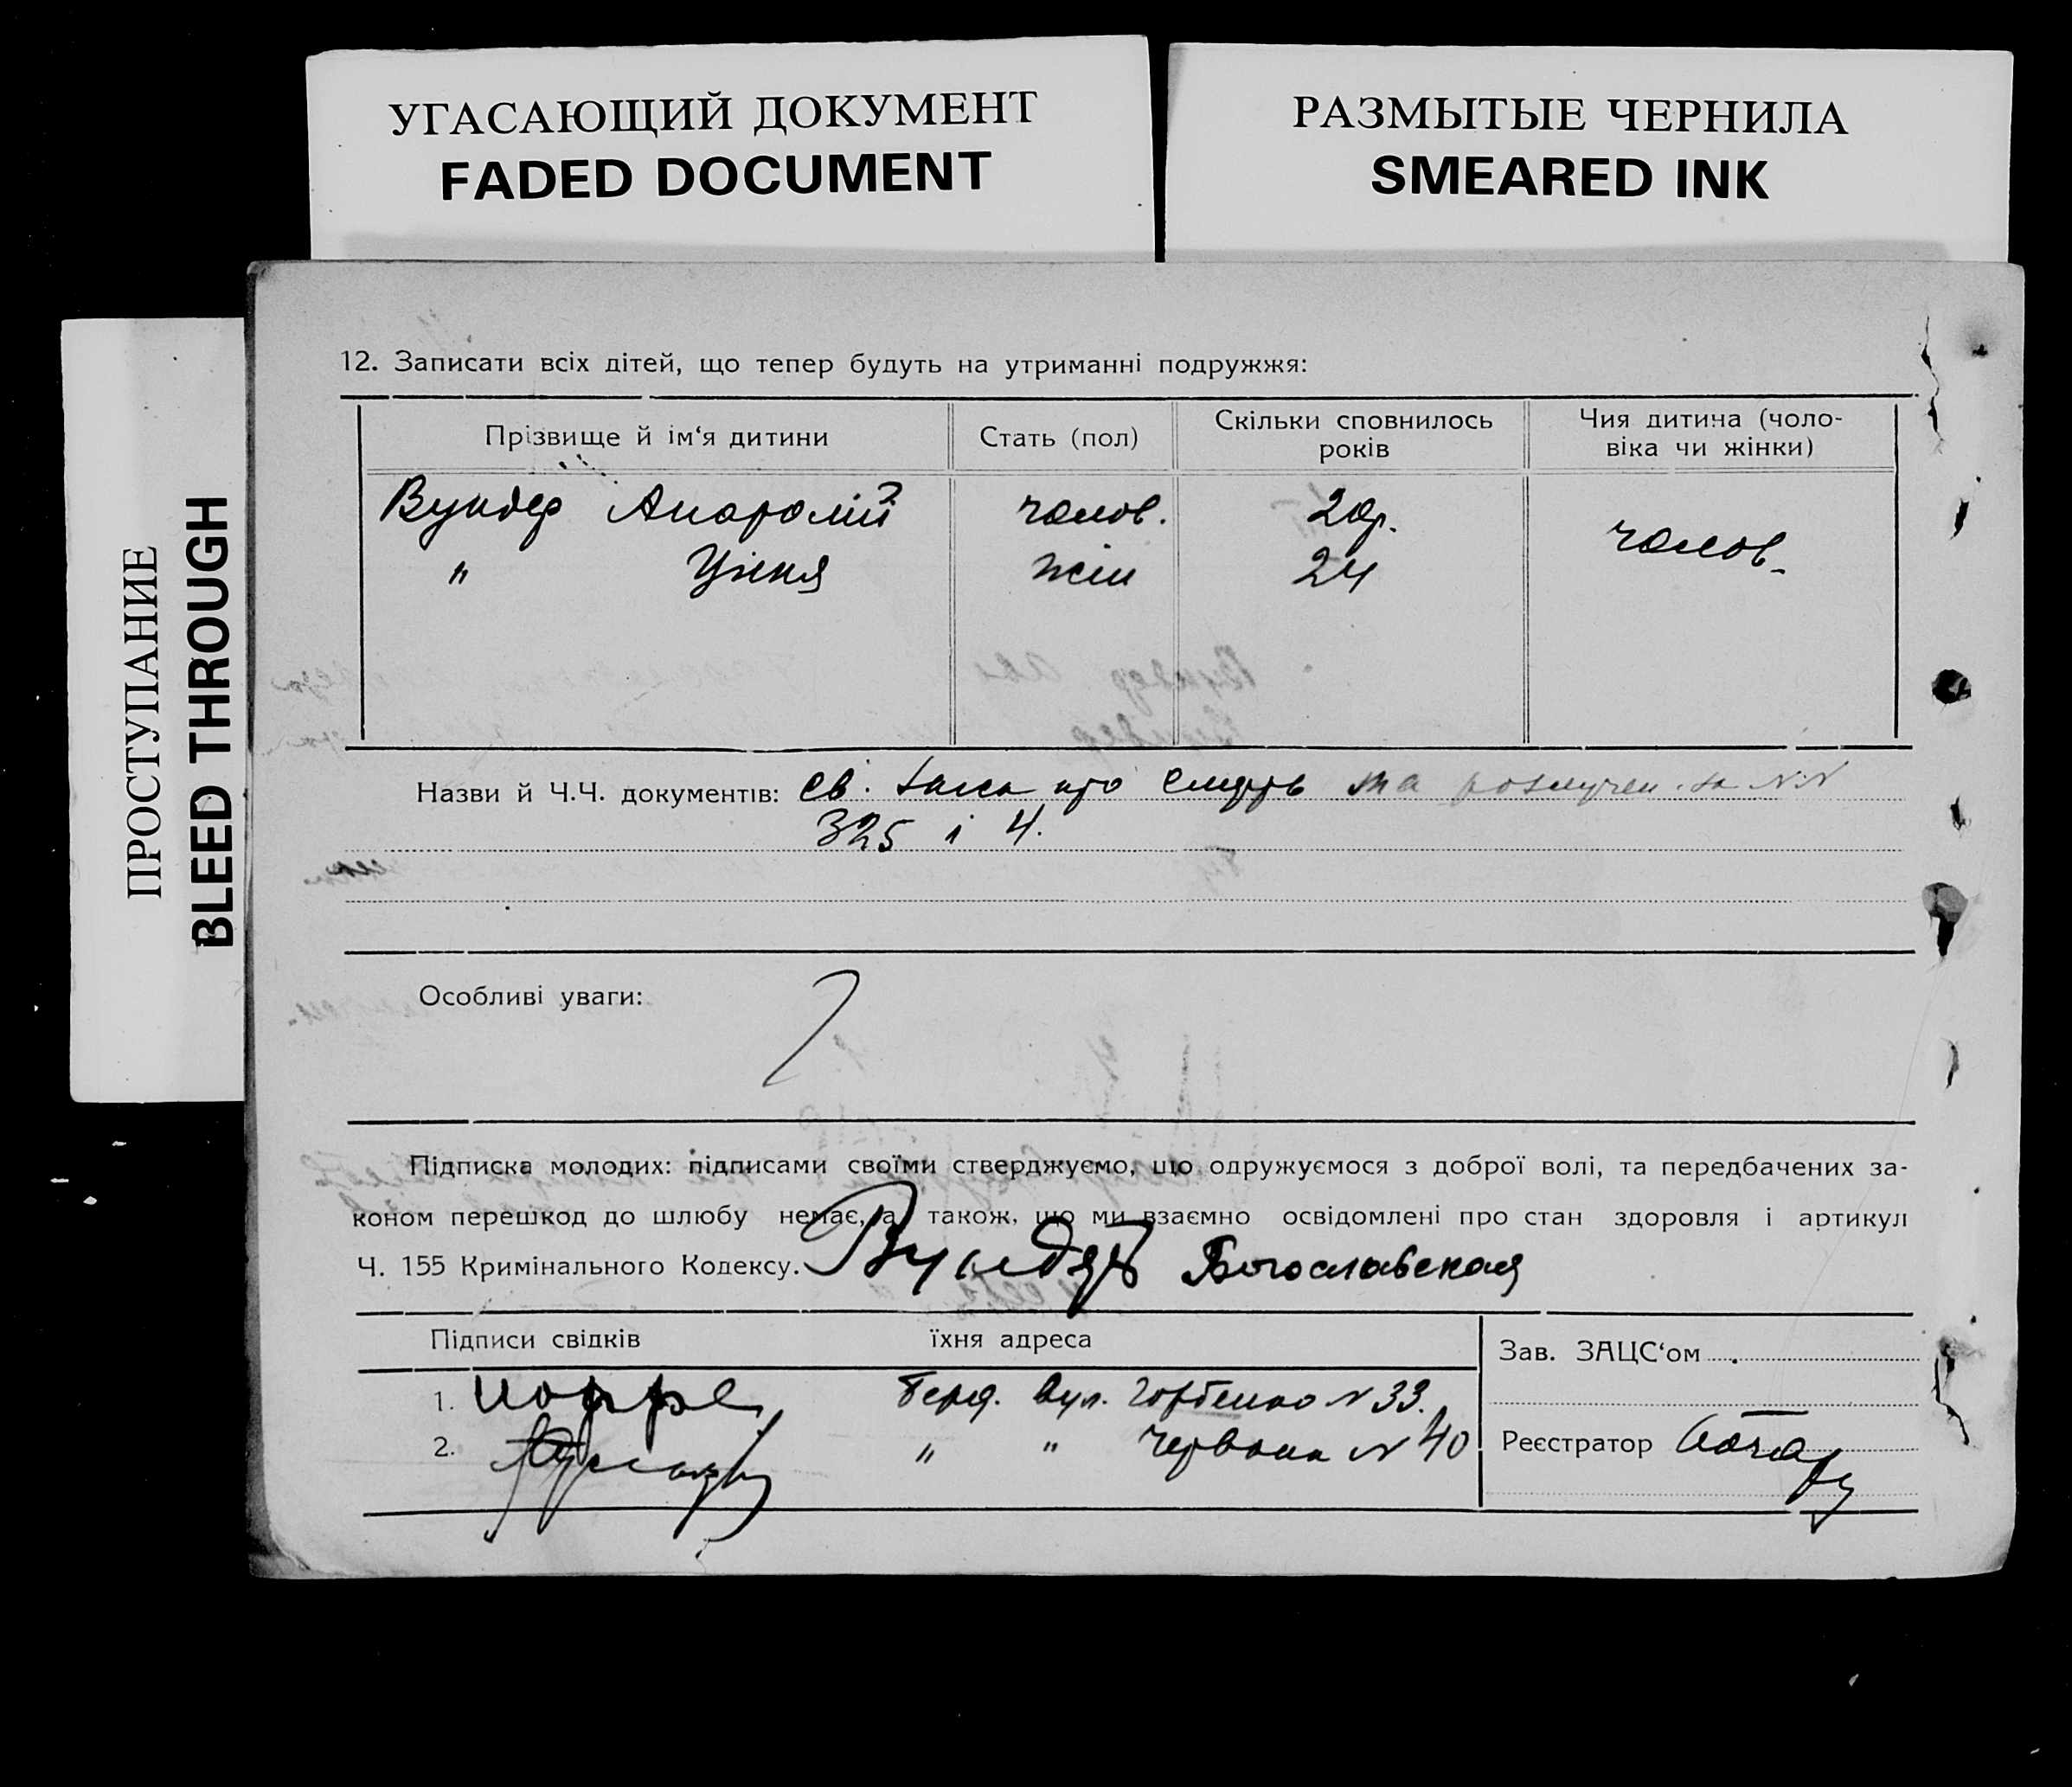 УГАСАЮЩИЙ ДОКУМЕНТ
FADED DOCUMENT
РАЗМЫТЫЕ ЧЕРНИЛА
SMEARED INK
ПРОСТУПАНИЕ
BLEED THROUGH
12. Записати всіх дітей, що тепер будуть на утриманні подружжя:
Прізвище й ім‘я дитини Стать (пол) Скільки сповнилось років Чия дитина (чоловіка чи жінки)
Вундер чолов. 20р. чолов.
" жін 24
Назви й Ч.Ч. документів: св. про смерть та розлучен. за NN
325 і 4.
Особливі уваги:
Підписка молодих: підписами своїми стверджуємо, що одружуємося з доброї волі, та передбачених за-
коном перешкод до шлюбу немає, а також, що ми взаємно освідомлені про стан здоровля і артикул
Ч. 155 Кримінального Кодексу. Вундер Богославская
Підписи свідків їхня адреса Зав. ЗАЦС‘ом
1. Берд. вул. Горбенко N 33.
2. " " Червона N 40 Реєстратор